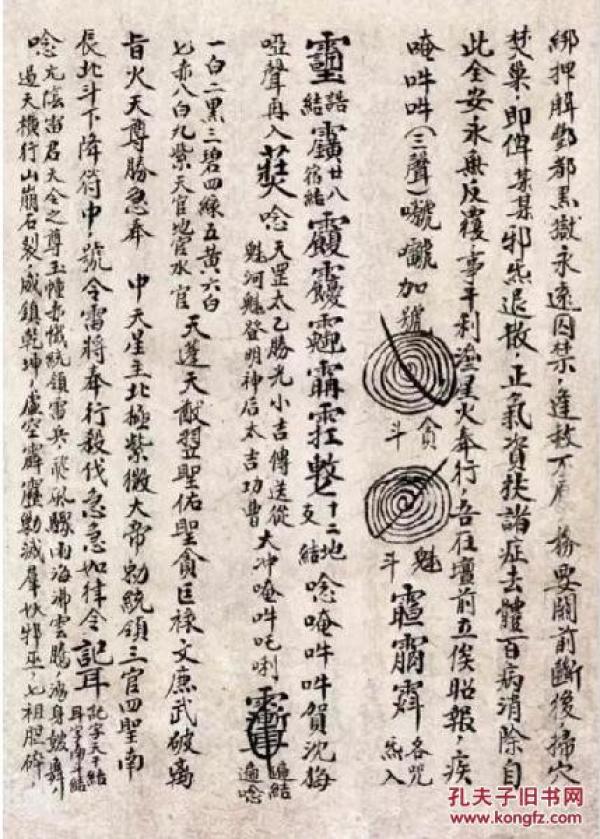 綁押解酆都黑獄永遠囚禁，逢赦不原 務要關前斷後掃穴
焚巢即俾某某邪炁退散，正氣資扶諸症去體百病消除自
此全安永無反覆，事干利濟星火奉行，吾在壇前立俟昭報，疾
唵吽吽（三聲）
加號
貪
斗
魁
斗
各咒
炁入
結
廿八
宿結
十二地
支結
唸唵吽吽賀沈梅
啞聲再入
唸
天罡太乙勝光小吉傳送從
魁河魁登明神后太吉功曹
大冲唵吽吒唎
一白二黑三碧四綠五黃六白
七赤八白九紫天官地官水官
天蓬天猷翌聖佑聖貪巨祿文廉武破
旨火天尊勝急奉 中天星主北極紫微大帝勅統領三官四聖南
長北斗下降符中，號令雷將奉行殺伐急急如律令
唸九
雷君天令之尊玉幢赤幟統領雷兵
南海沸雲騰
過天機行山崩石裂，威鎮乾坤，虛空霹靂勦滅羣妖邪巫，七祖胆碎，
孔夫子旧书网
www.kongfz.com